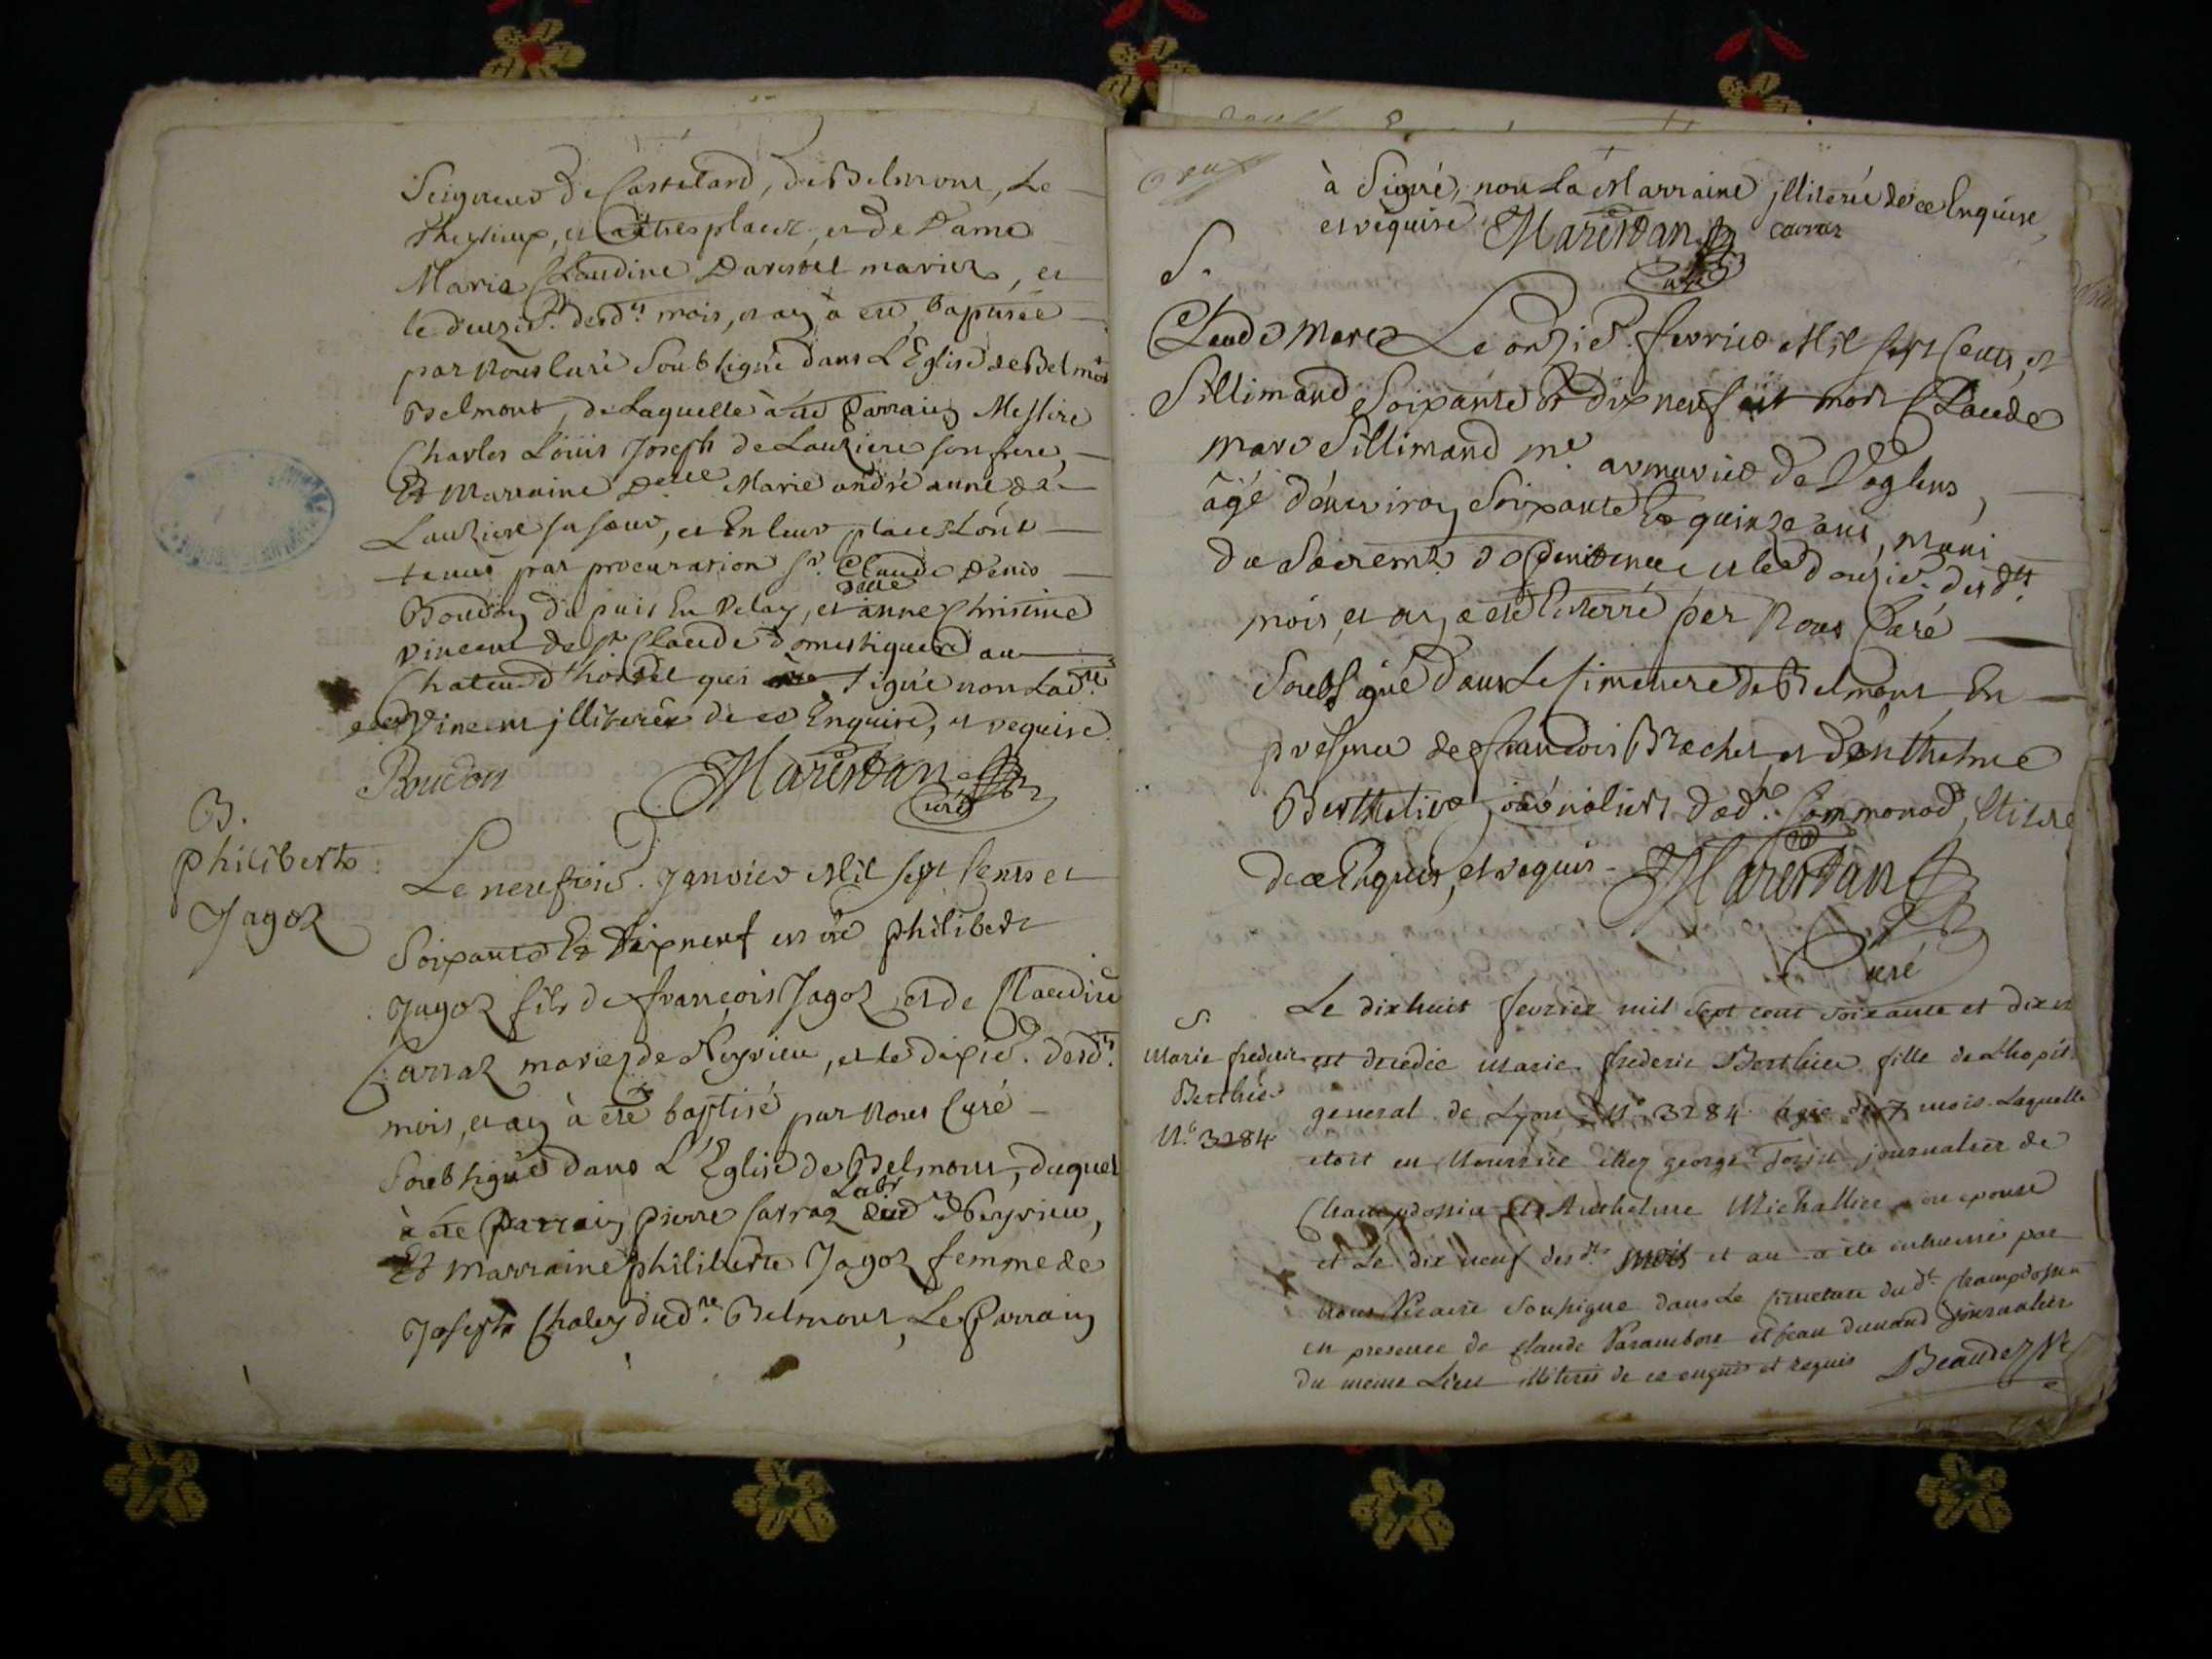 Seigneur de Castelard, de Belmont, Le
et autres places, et de Dame
Marie Claudine mariez, et
le desd.ts mois, et an à eté baptisée
par nous Curé Soubsigné dans L'Eglise de Belmont
Belmont, de Laquelle à été Parrain Messire
Charles Louis Joseph de Lauziere son frere,
Et Marraine Delle Marie andré anne de
Lauziere sa soeur, et En leur place L'ont
tenue par procuration Sr. Claude Denis
Boudon du puis En Velay, et Delle anne Christine
Vincent de St Claude domestiques au
Chateau d'hostel qui signé non Lad.te
Vincent jlliterée de ce Enquise, et requise.
Boudon Marestan Curé
B.
philibert
Jagoz
Le neufvie. Janvier Mil sept Cents et
Soixante Et dixneuf est né philibert
Jagoz fils de françois Jagoz et de Claudine
Carraz mariez de Neyrieu, et le dixie. desd.ts
mois, et an à eté baptisé par nous Curé
Soubsigné dans L'Eglise de Belmont, duquel
à eté Parrain pierre Carraz Labr dud Neyrieu,
Et marraine philiberte Jagoz femme de
Joseph Chaley dud.t Belmont, Le Parrain
à Signé, non La Marraine jlliterée de ce Enquise,
et requise Marestan Curé carraz
S.
Claude Marc
Sillimand
Le onzie. fevrier Mil sept Cents, et
Soixante Et dix neuf est mort Claude
Marc Sillimand me. armurier de Voglens,
âgé d'environ Soixante Et quinze ans, Muni
du Sacremt. de penitence, et le douzie. desd.ts
mois, et an, a eté Enterré par Nous Curé
Soubsigné dans Le Cimetiere de Belmont En
presence de françois Brochet, et d'Enthelme
Berthelier, dud.t Commonod,
de ce Enquis, et requis. Marestan
Curé
S.
Marie frederic
Berthier
N.o 3284
Le dix huit fevrier mil sept cent soixante et dix
est decedée Marie frederic Berthier fille de L'hopit
general de Lyon N.o 3284 agée de 7 mois. Laquelle
etoit en Nourrice chez george journalier de
Champdossin et Anthelme Michallier son epouse
et Le dix neuf desd.ts mois et an a été inhumée par
nous Vicaire Soussigné dans Le Cimetiere dud.t Champdossin
en presence de Claude Parambon et jean dunand journalier
du meme Lieu illiterés de ce enquis et requis Beaudez Ve